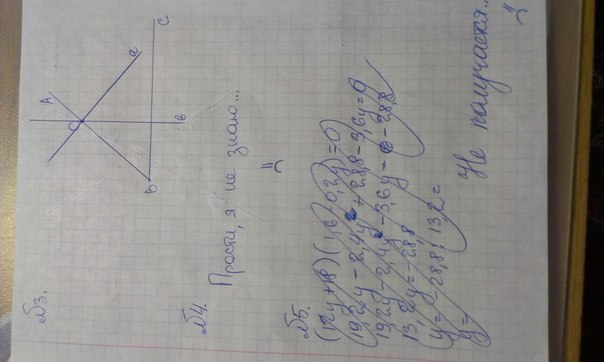 №3.
A
a
C
O
B
в
№4.
Прости, я не знаю...
=(
№5.
(12y+18)(1,6-0,2y)=0
19,2y-2,4y²+28,8-3,6y=0
19,2y-2,4y²-3,6y=-28,8
13,2y=-28,8
y=-28,8:13,2=
y=
Не получается...
=(